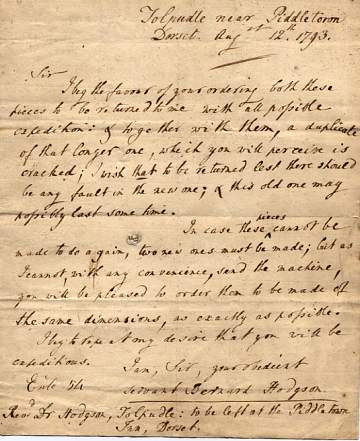 Tolpudle near Piddletown
Dorset. Augst 12th. 1793.
Sir
I beg the favour of your ordering both these
pieces to be returned to me with all possible
expedition: & together with them, a duplicate
of that longer one, which you will perceive is
cracked; I wish that to be returned lest there should
be any fault in the new one; & this old one may
possibly last some time.
In case these pieces cannot be
made to do again, two new ones must be made; but as
I cannot, with any convenience, send the machine,
you will be pleased to order them to be made of
the same dimensions, as exactly as possible.
I beg to repeat my desire that you will be
expeditious.
I am, Sir, your obedient
servant Bernard Hodgson
Revd. Dr Hodgson, Tolpudle: to be left at the Piddletown
Inn, Dorset.